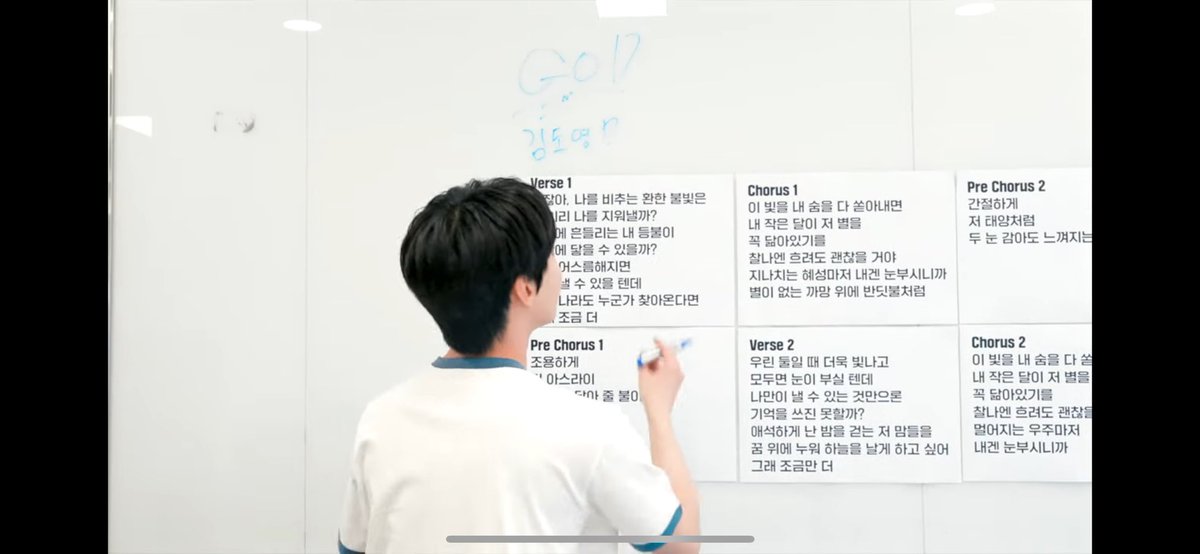 God
김도영
Verse 1
나를 비추는 환한 불빛은
나를 지워낼까?
흔들리는 내 등불이
닿을 수 있을까?
어스름해지면
낼 수 있을 텐데
나라도 누군가 찾아온다면
조금 더
Chorus 1
이 빛을 내 숨을 다 쏟아내면
내 작은 달이 저 별을
꼭 닮아있기를
찰나엔 흐려도 괜찮을 거야
지나치는 혜성마저 내겐 눈부시니까
별이 없는 까망 위에 반딧불처럼
Pre Chorus 2
간절하게
저 태양처럼
두 눈 감아도 느껴지는
Pre Chorus 1
조용하게
아스라이
줄
Verse 2
우린 둘일 때 더욱 빛나고
모두면 눈이 부실 텐데
나만이 낼 수 있는 것만으론
기억을 쓰진 못할까?
애석하게 난 밤을 걷는 저 맘들을
꿈 위에 누워 하늘을 날게 하고 싶어
그래 조금만 더
Chorus 2
이 빛을 내 숨을 다
내 작은 달이 저 별을
꼭 닮아있기를
찰나엔 흐려도
멀어지는 우주마저
내겐 눈부시니까